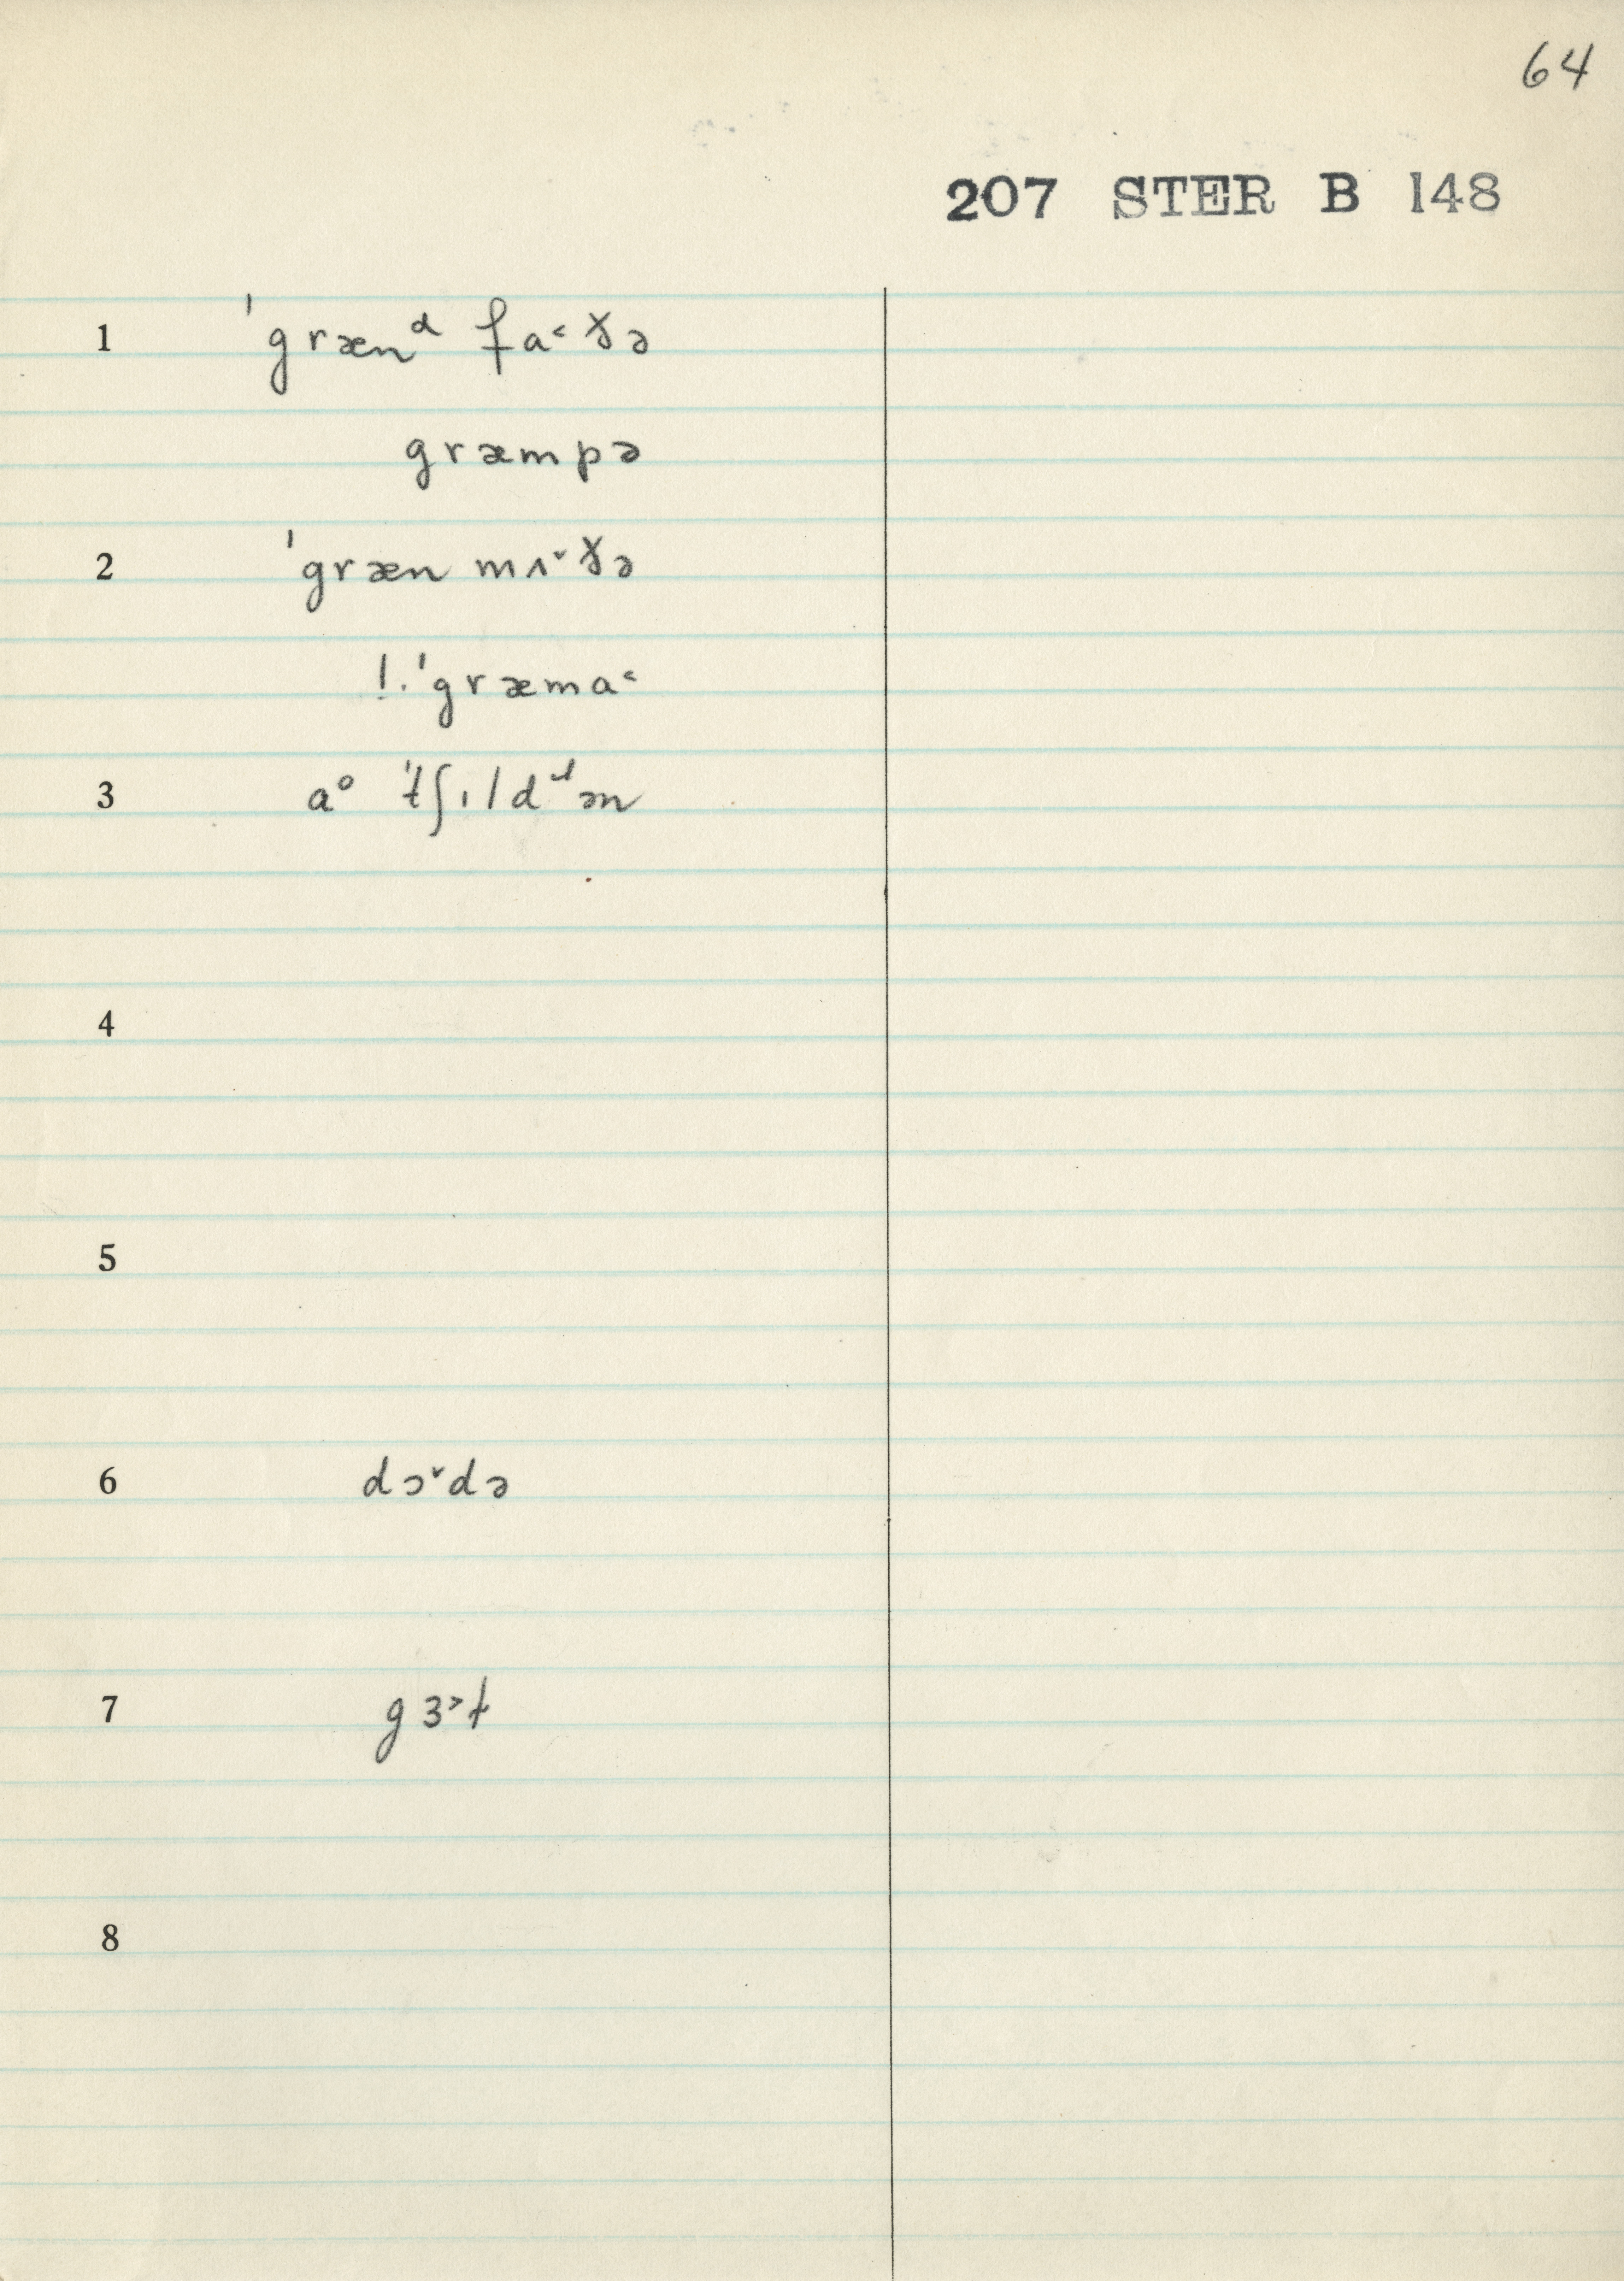 64
207 STER B 148
1 ˈgrænᵈ fa˂ ðə
græmpə
2 ˈgræn mʌ˅ ðə
!. ˈgræma˂
3 aᵒ ˈtʃɪldᶤən
4
5
6 dɔ˅də
7 gɜ˃t
8